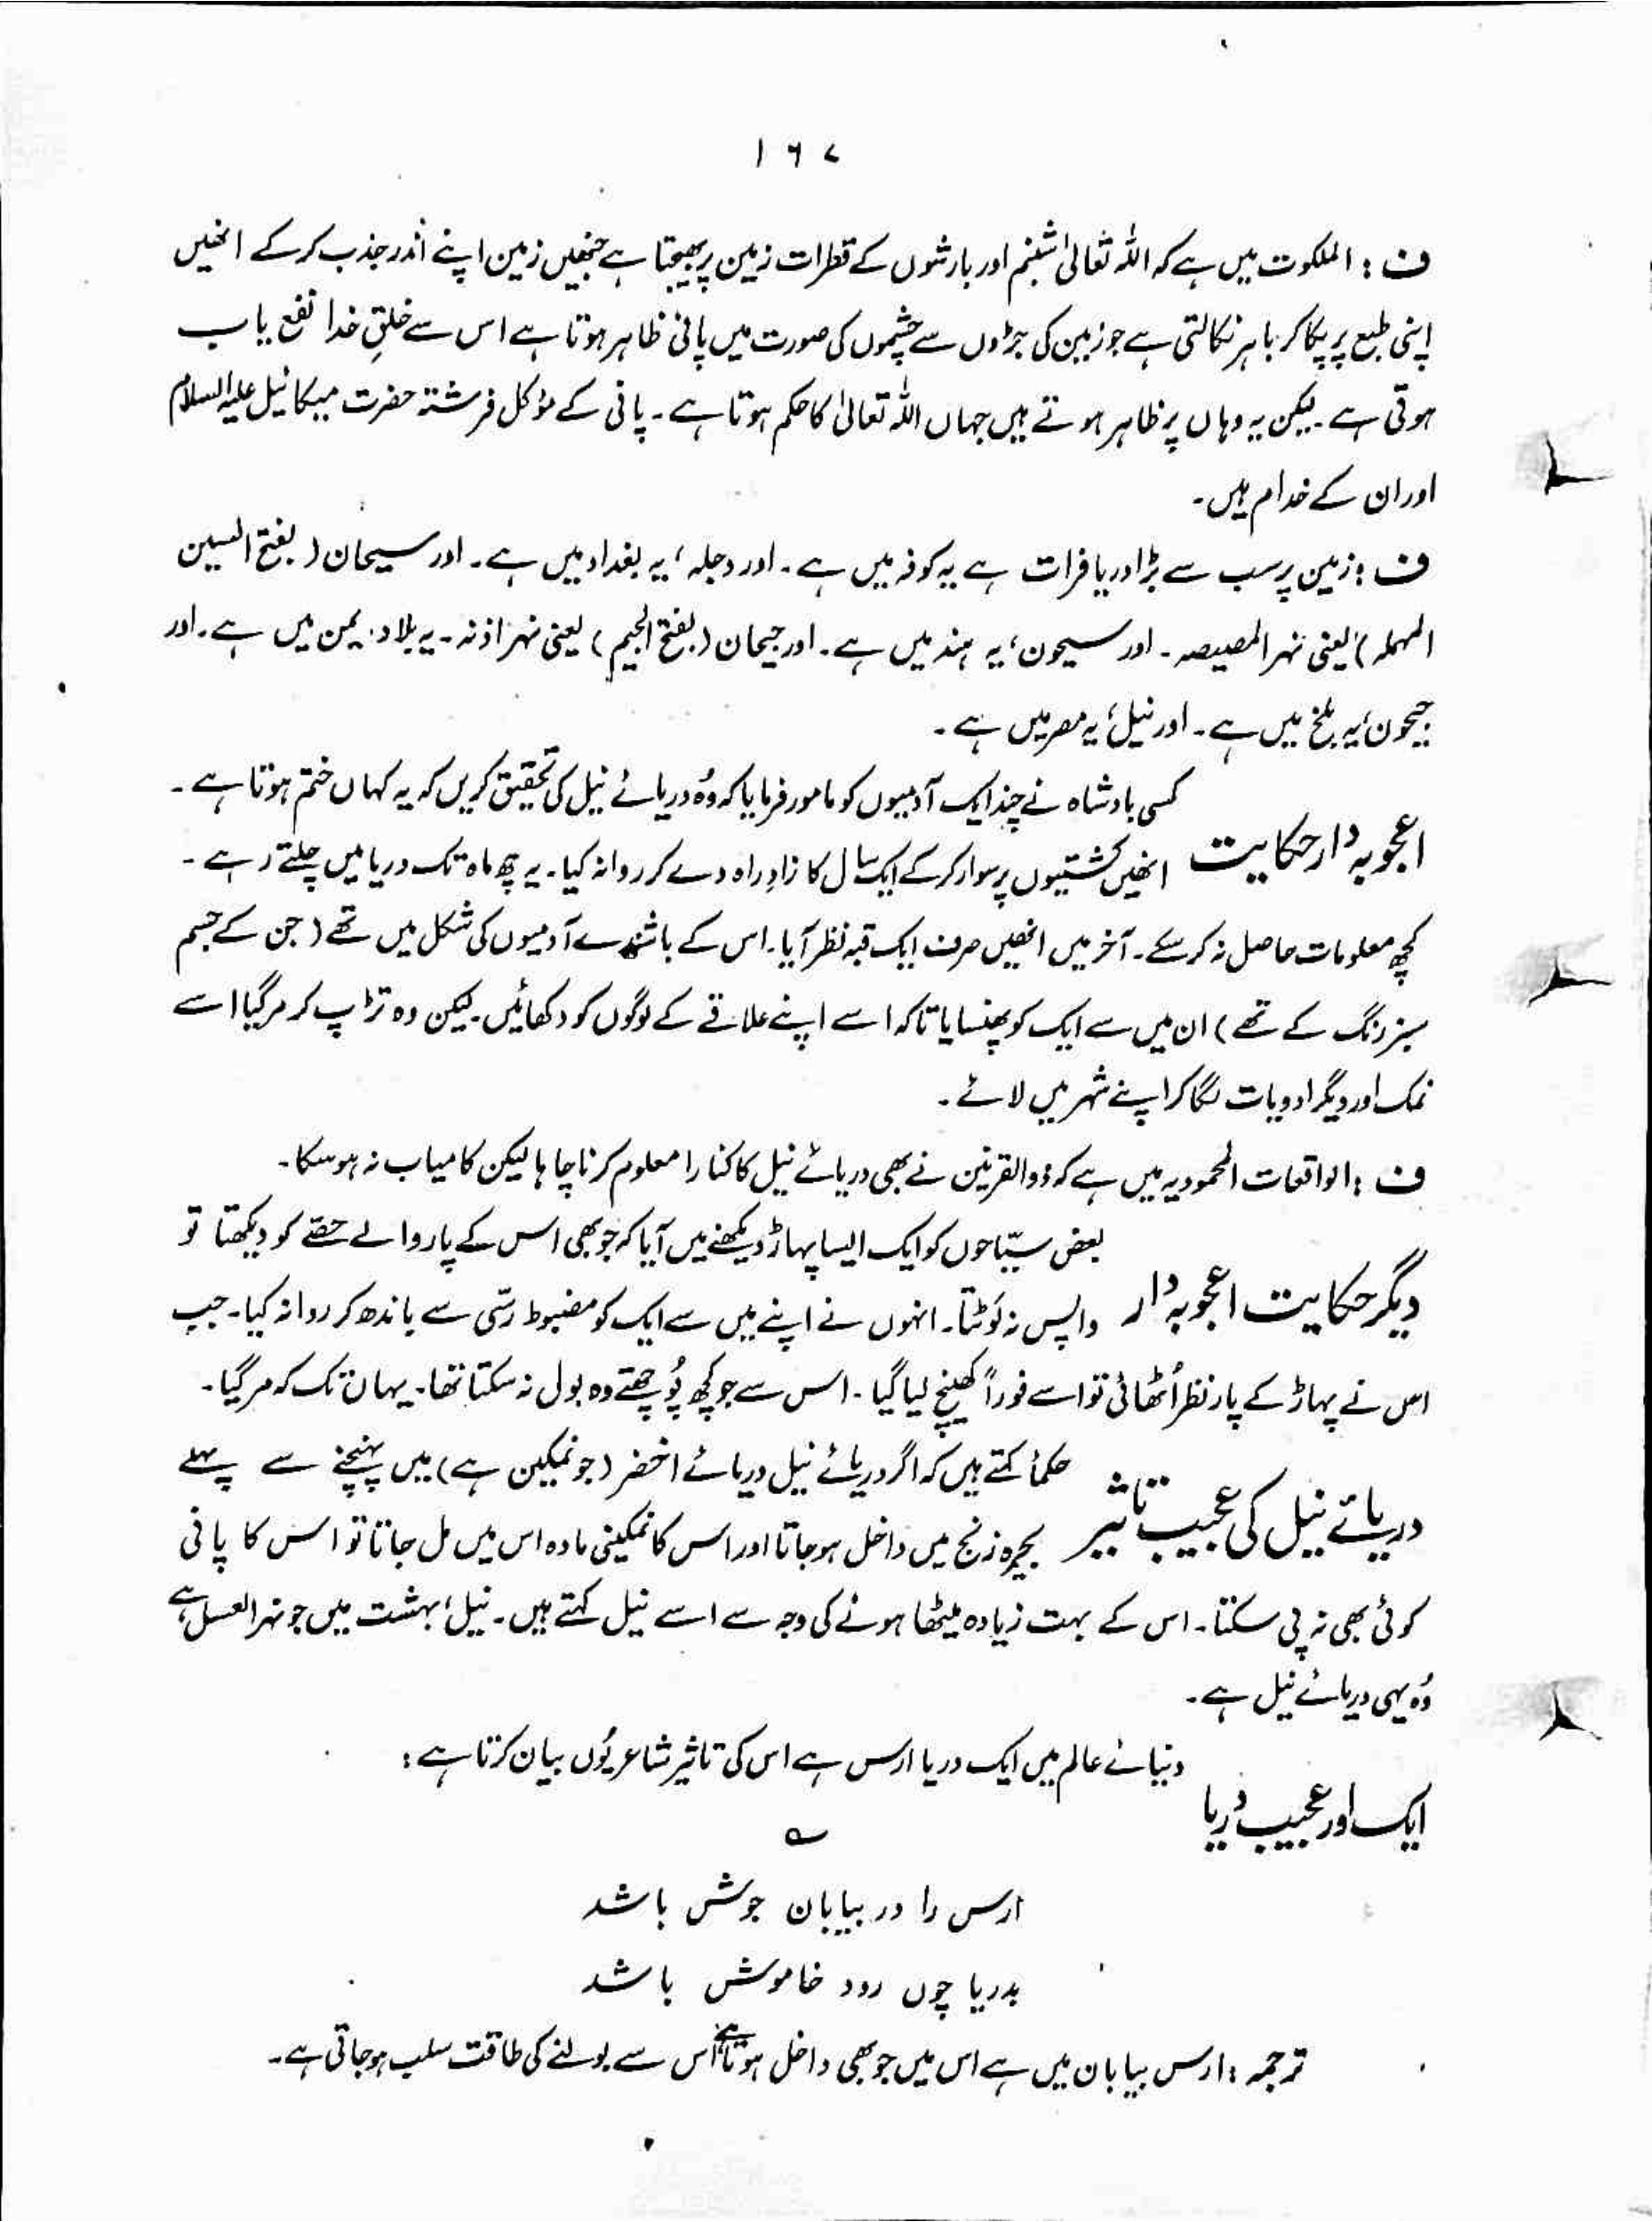 ۱۶۷
ف : الملکوت میں ہے کہ اللہ تعالیٰ شبنم اور بارشوں کے قطرات زمین پر بھیجتا ہے جنھیں زمین اپنے اندر جذب کرکے انھیں
اپنی طبع پر پکا کر باہر نکالتی ہے جو زمین کی جڑوں سے چشموں کی صورت میں پانی ظاہر ہوتا ہے اس سے خلقِ خدا نفع یاب
ہوتی ہے ۔ لیکن یہ وہاں پر ظاہر ہوتے ہیں جہاں اللہ تعالیٰ کا حکم ہوتا ہے ۔ پانی کے مؤکل فرشتہ حضرت میکائیل علیہ السلام
اور ان کے خدام ہیں ۔
ف : زمین پر سب سے بڑا دریا فرات ہے یہ کوفہ میں ہے ۔ اور دجلہ ، یہ بغداد میں ہے ۔ اور سیحان ( بفتح السین
المہملہ ) یعنی نہر المصیصہ ۔ اور سیحون ، یہ ہند میں ہے ۔ اور جیحان ( بفتح الجیم ) یعنی نہر اذنہ ۔ یہ بلاد یمن میں ہے ۔ اور
جیحون ، یہ بلخ میں ہے ۔ اور نیل ، یہ مصر میں ہے ۔
کسی بادشاہ نے چند ایک آدمیوں کو مامور فرمایا کہ وُہ دریائے نیل کی تحقیق کریں کہ یہ کہاں ختم ہوتا ہے ۔
اعجوبہ دار حکایت
انھیں کشتیوں پر سوار کرکے ایک سال کا زادِ راہ دے کر روانہ کیا ۔ یہ چھ ماہ تک دریا میں چلتے رہے ۔
کچھ معلومات حاصل نہ کرسکے ۔ آخر میں انھیں صرف ایک قبہ نظر آیا ۔ اس کے باشندے آدمیوں کی شکل میں تھے ( جن کے جسم
سبز رنگ کے تھے ) ان میں سے ایک کو پھنسایا تاکہ اسے اپنے علاقے کے لوگوں کو دکھائیں ۔ لیکن وہ تڑپ کر مرگیا اسے
نمک اور دیگر ادویات لگا کر اپنے شہر میں لائے ۔
ف : الواقعات المحمودیہ میں ہے کہ ذوالقرنین نے بھی دریائے نیل کا کنارا معلوم کرنا چاہا لیکن کامیاب نہ ہوسکا ۔
بعض سیّاحوں کو ایک ایسا پہاڑ دیکھنے میں آیا کہ جو بھی اس کے پار والے حصّے کو دیکھتا تو
دیگر حکایت اعجوبہ دار
واپس نہ لَوٹتا ۔ انہوں نے اپنے میں سے ایک کو مضبوط رسّی سے باندھ کر روانہ کیا ۔ جب
اس نے پہاڑ کے پار نظر اُٹھائی تو اسے فوراً کھینچ لیا گیا ۔ اس سے جو کچھ پُوچھتے وہ بول نہ سکتا تھا ۔ یہاں تک کہ مرگیا ۔
حکماُ کہتے ہیں کہ اگر دریائے نیل دریائے اخضر ( جو نمکین ہے ) میں پہنچنے سے پہلے
دریائے نیل کی عجیب تاثیر
بحیرہ زنج میں داخل ہوجاتا اور اس کا نمکینی مادہ اس میں مل جاتا تو اس کا پانی
کوئی بھی نہ پی سکتا ۔ اس کے بہت زیادہ میٹھا ہونے کی وجہ سے اسے نیل کہتے ہیں ۔ نیل ، بہشت میں جو نہر العسل ہے
وُہ یہی دریائے نیل ہے ۔
دنیائے عالم میں ایک دریا ارس ہے اس کی تاثیر شاعر یُوں بیان کرتا ہے :
ایک اور عجیب دریا
ے
ارس را در بیابان جوش باشد
بدریا چوں رود خاموش باشد
ترجمہ : ارس بیابان میں ہے اس میں جو بھی داخل ہوتا ہے اس سے بولنے کی طاقت سلب ہوجاتی ہے ۔